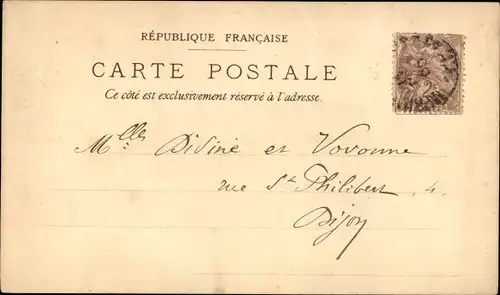 RÉPUBLIQUE FRANÇAISE
CARTE POSTALE
Ce côté est exclusivement réservé à l'adresse.
Mlles Didine et Vovonne
rue St Philibert, 4.
Dijon